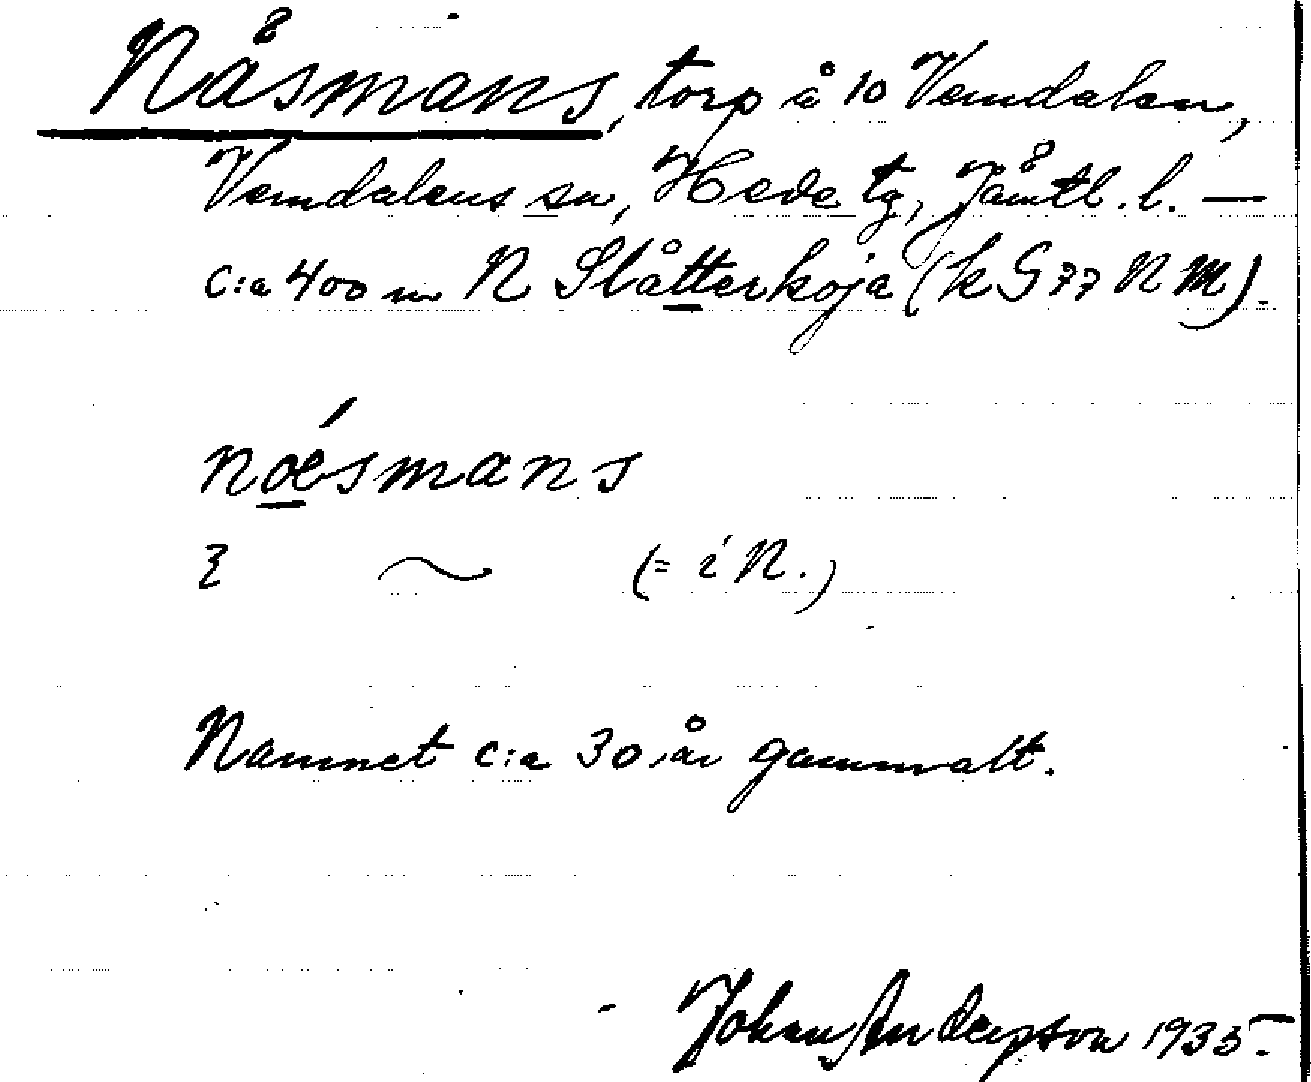 Nåsmans, torp å 10 Vemdalen,
Vemdalens sn, Hede tg, Jämtl. l. —
c:a 400 m N Slåtterkoja (k G 77 N M).
nœ́smans
ʒ ~ (= i N.)
Namnet c:a 30 år gammalt.
Johan Anderpson 1935.